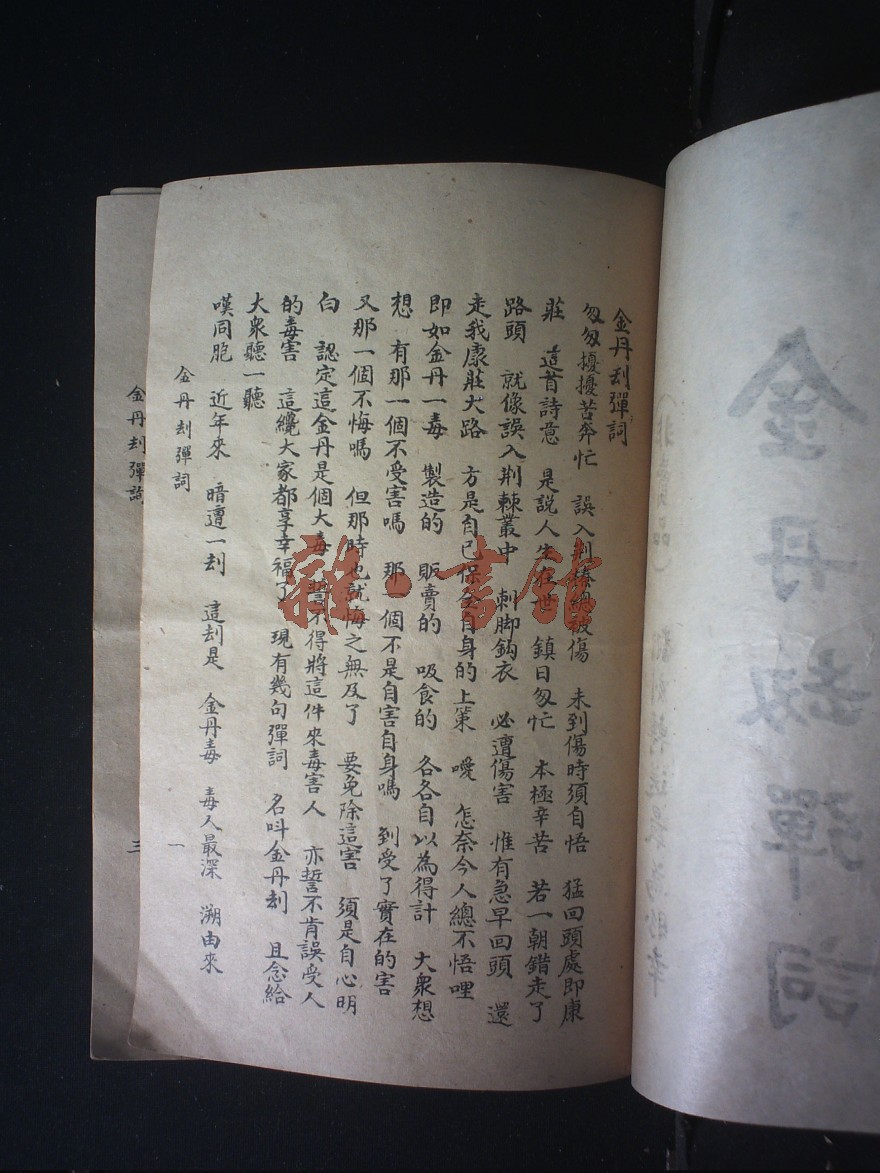 金丹刦彈詞
匆匆擾擾苦奔忙 誤入荆榛總被傷 未到傷時須自悟 猛回頭處即康
莊 這首詩意 是説人生在世 鎮日匆忙 本極辛苦 若一朝錯走了
路頭 就像誤入荆棘叢中 刺脚鈎衣 必遭傷害 惟有急早回頭 還
走我康莊大路 方是自己保全自身的上策 噯 怎奈今人總不悟哩
即如金丹一毒 製造的 販賣的 吸食的 各各自以為得計 大衆想
想 有那一個不受害嗎 那一個不是自害自身嗎 到受了實在的害
又那一個不悔嗎 但那時也就悔之無及了 要免除這害 須是自心明
白 認定這金丹是個大毒 誓不得將這件來毒害人 亦誓不肯誤受人
的毒害 這纔大家都享幸福了 現有幾句彈詞 名呌金丹刦 且念給
大衆聽一聽
嘆同胞 近年來 暗遭一刦 這刦是 金丹毒 毒人最深 溯由來
金丹刦彈詞 一
金丹刦彈詞 三
金丹劫彈詞
(非賣品)
雜·書館